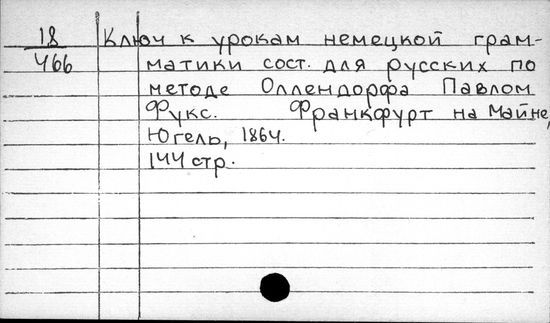 18 Ключ к урокам немецкой грам-
466 матики сост. для русских по
методе Оллендорфа Павлом
Фукс. Франкфурт на Майне,
Югель, 1864.
144 стр.